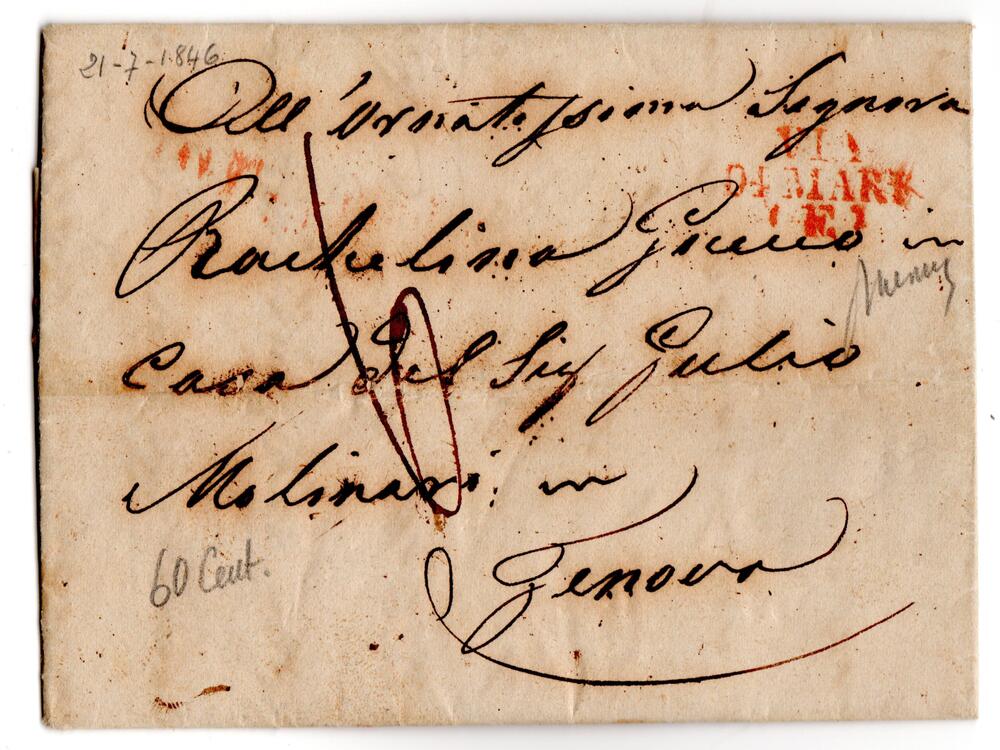 21-7-1846
All'Ornatissima Signora
VIA
DI MARE
(E)
Rachelina in
Casa del Sig Gulio
Molinari in
60 Cent.
Genova